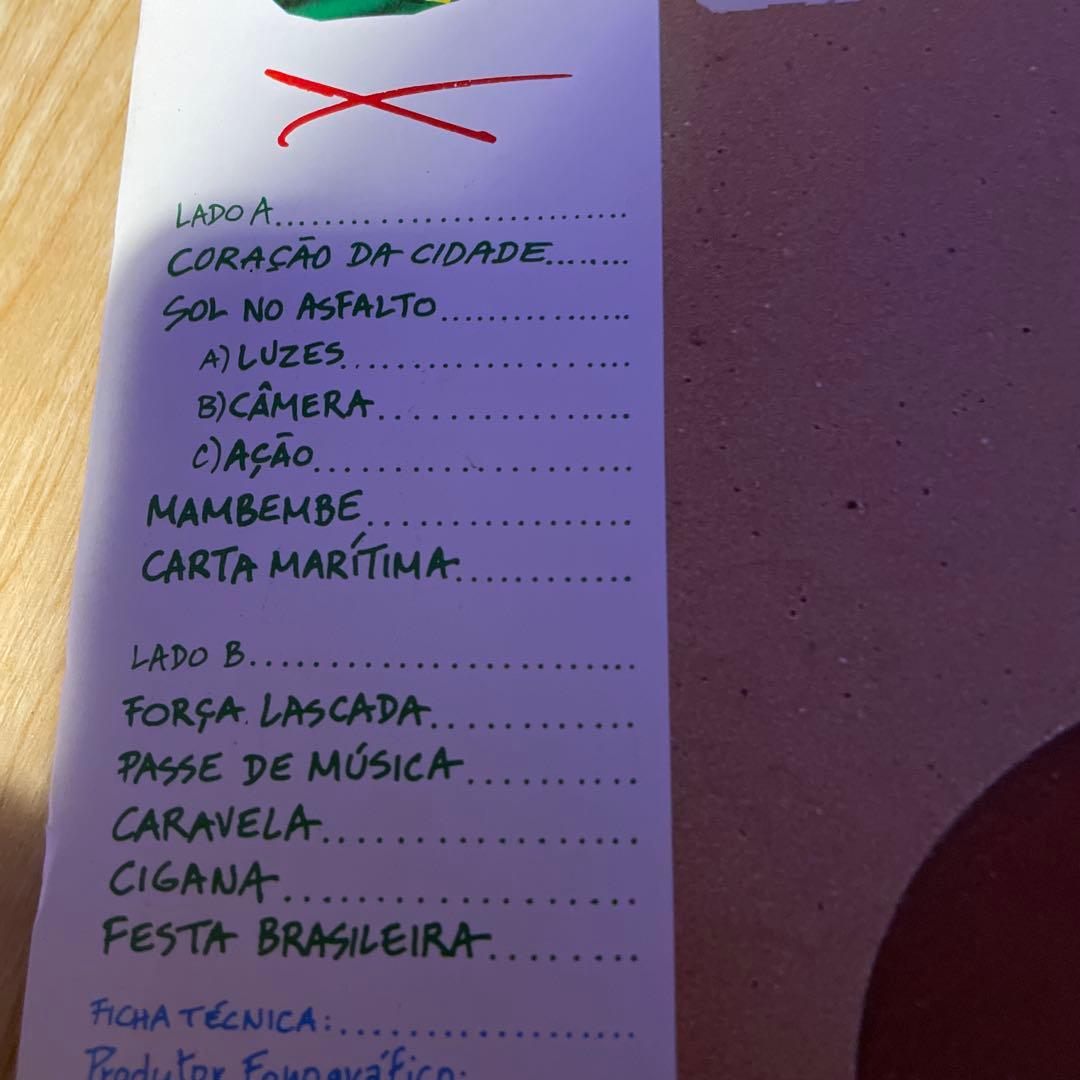 LADO A............................
CORAÇÃO DA CIDADE........
SOL NO ASFALTO..............
A) LUZES....................
B) CÂMERA.................
C) AÇÃO......................
MAMBEMBE...................
CARTA MARÍTIMA............
LADO B..........................
FORÇA LASCADA............
PASSE DE MÚSICA.........
CARAVELA.................
CIGANA...................
FESTA BRASILEIRA........
FICHA TÉCNICA:....................
Produtor Fonográfico: